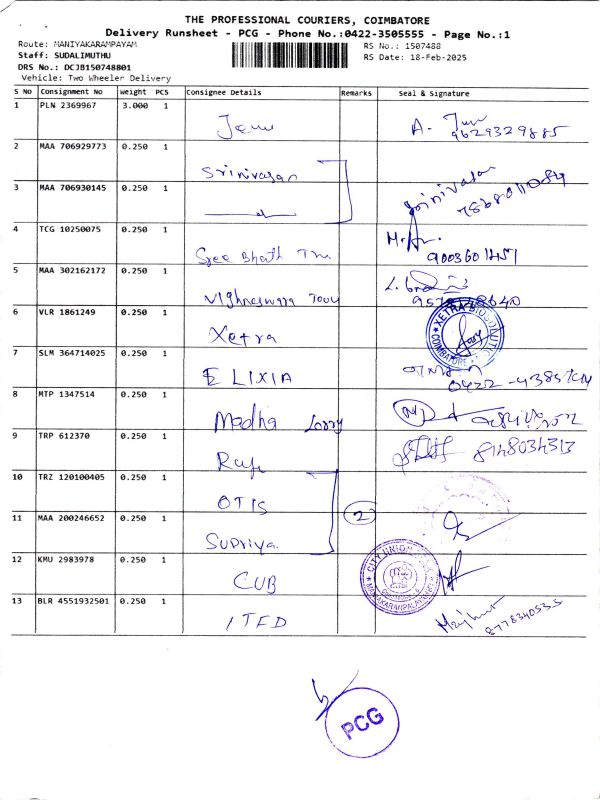 THE PROFESSIONAL COURIERS, COIMBATORE
Delivery Runsheet - PCG - Phone No.:0422-3505555 - Page No.:1
Route: MANIYAKARAMPAYAM
RS No.: 1507488
Staff: SUDALIMUTHU
RS Date: 18-Feb-2025
DRS No.: DCJB150748801
Vehicle: Two Wheeler Delivery
S NO Consignment No Weight PCS Consignee Details Remarks Seal & Signature
1 PLN 2369967 3.000 1
9629329885
2 MAA 706929773 0.250 1 Srinivasan
3 MAA 706930145 0.250 1 Srinivasan
4 TCG 10250075 0.250 1 Sree Bhath
5 MAA 302162172 0.250 1 Vighneswara
6 VLR 1861249 0.250 1 Xetra
XETRA
COIMBATORE
7 SLM 364714025 0.250 1 ELIXIA
8 MTP 1347514 0.250 1 Madha Lorry
9 TRP 612370 0.250 1 8148034313
10 TRZ 120100405 0.250 1 OTIS
11 MAA 200246652 0.250 1 Supriya 2
12 KMU 2983978 0.250 1 CUB
CITY UNION BANK
13 BLR 4551932501 0.250 1 ITED
PCG